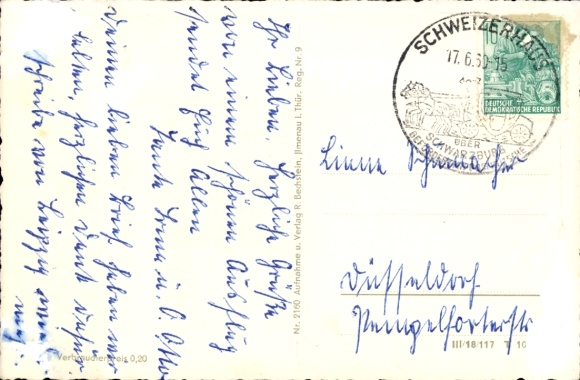 Ihr Lieben. Herzliche Grüße
von einem schönen Ausflug
sendet Euch Allen
Tante Irma u. O. Otto
Deinen lieben Brief haben wir
erhalten, herzlichen Dank dafür
schreibe von Leipzig
Nr. 2160 Aufnahme u. Verlag R. Bechstein, Ilmenau i. Thür. Reg. Nr 9
Verbraucherpreis 0,20
SCHWEIZERHAUS
17.6.60-15
ÜBER
SCHWARZBURG
DEUTSCHE
DEMOKRATISCHE REPUBLIK
Düsseldorf
III/18/117